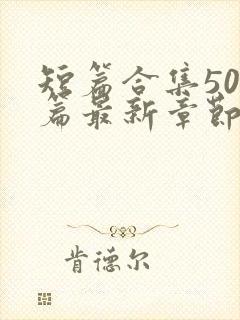 短篇合集50
篇最新章节
肯德尔